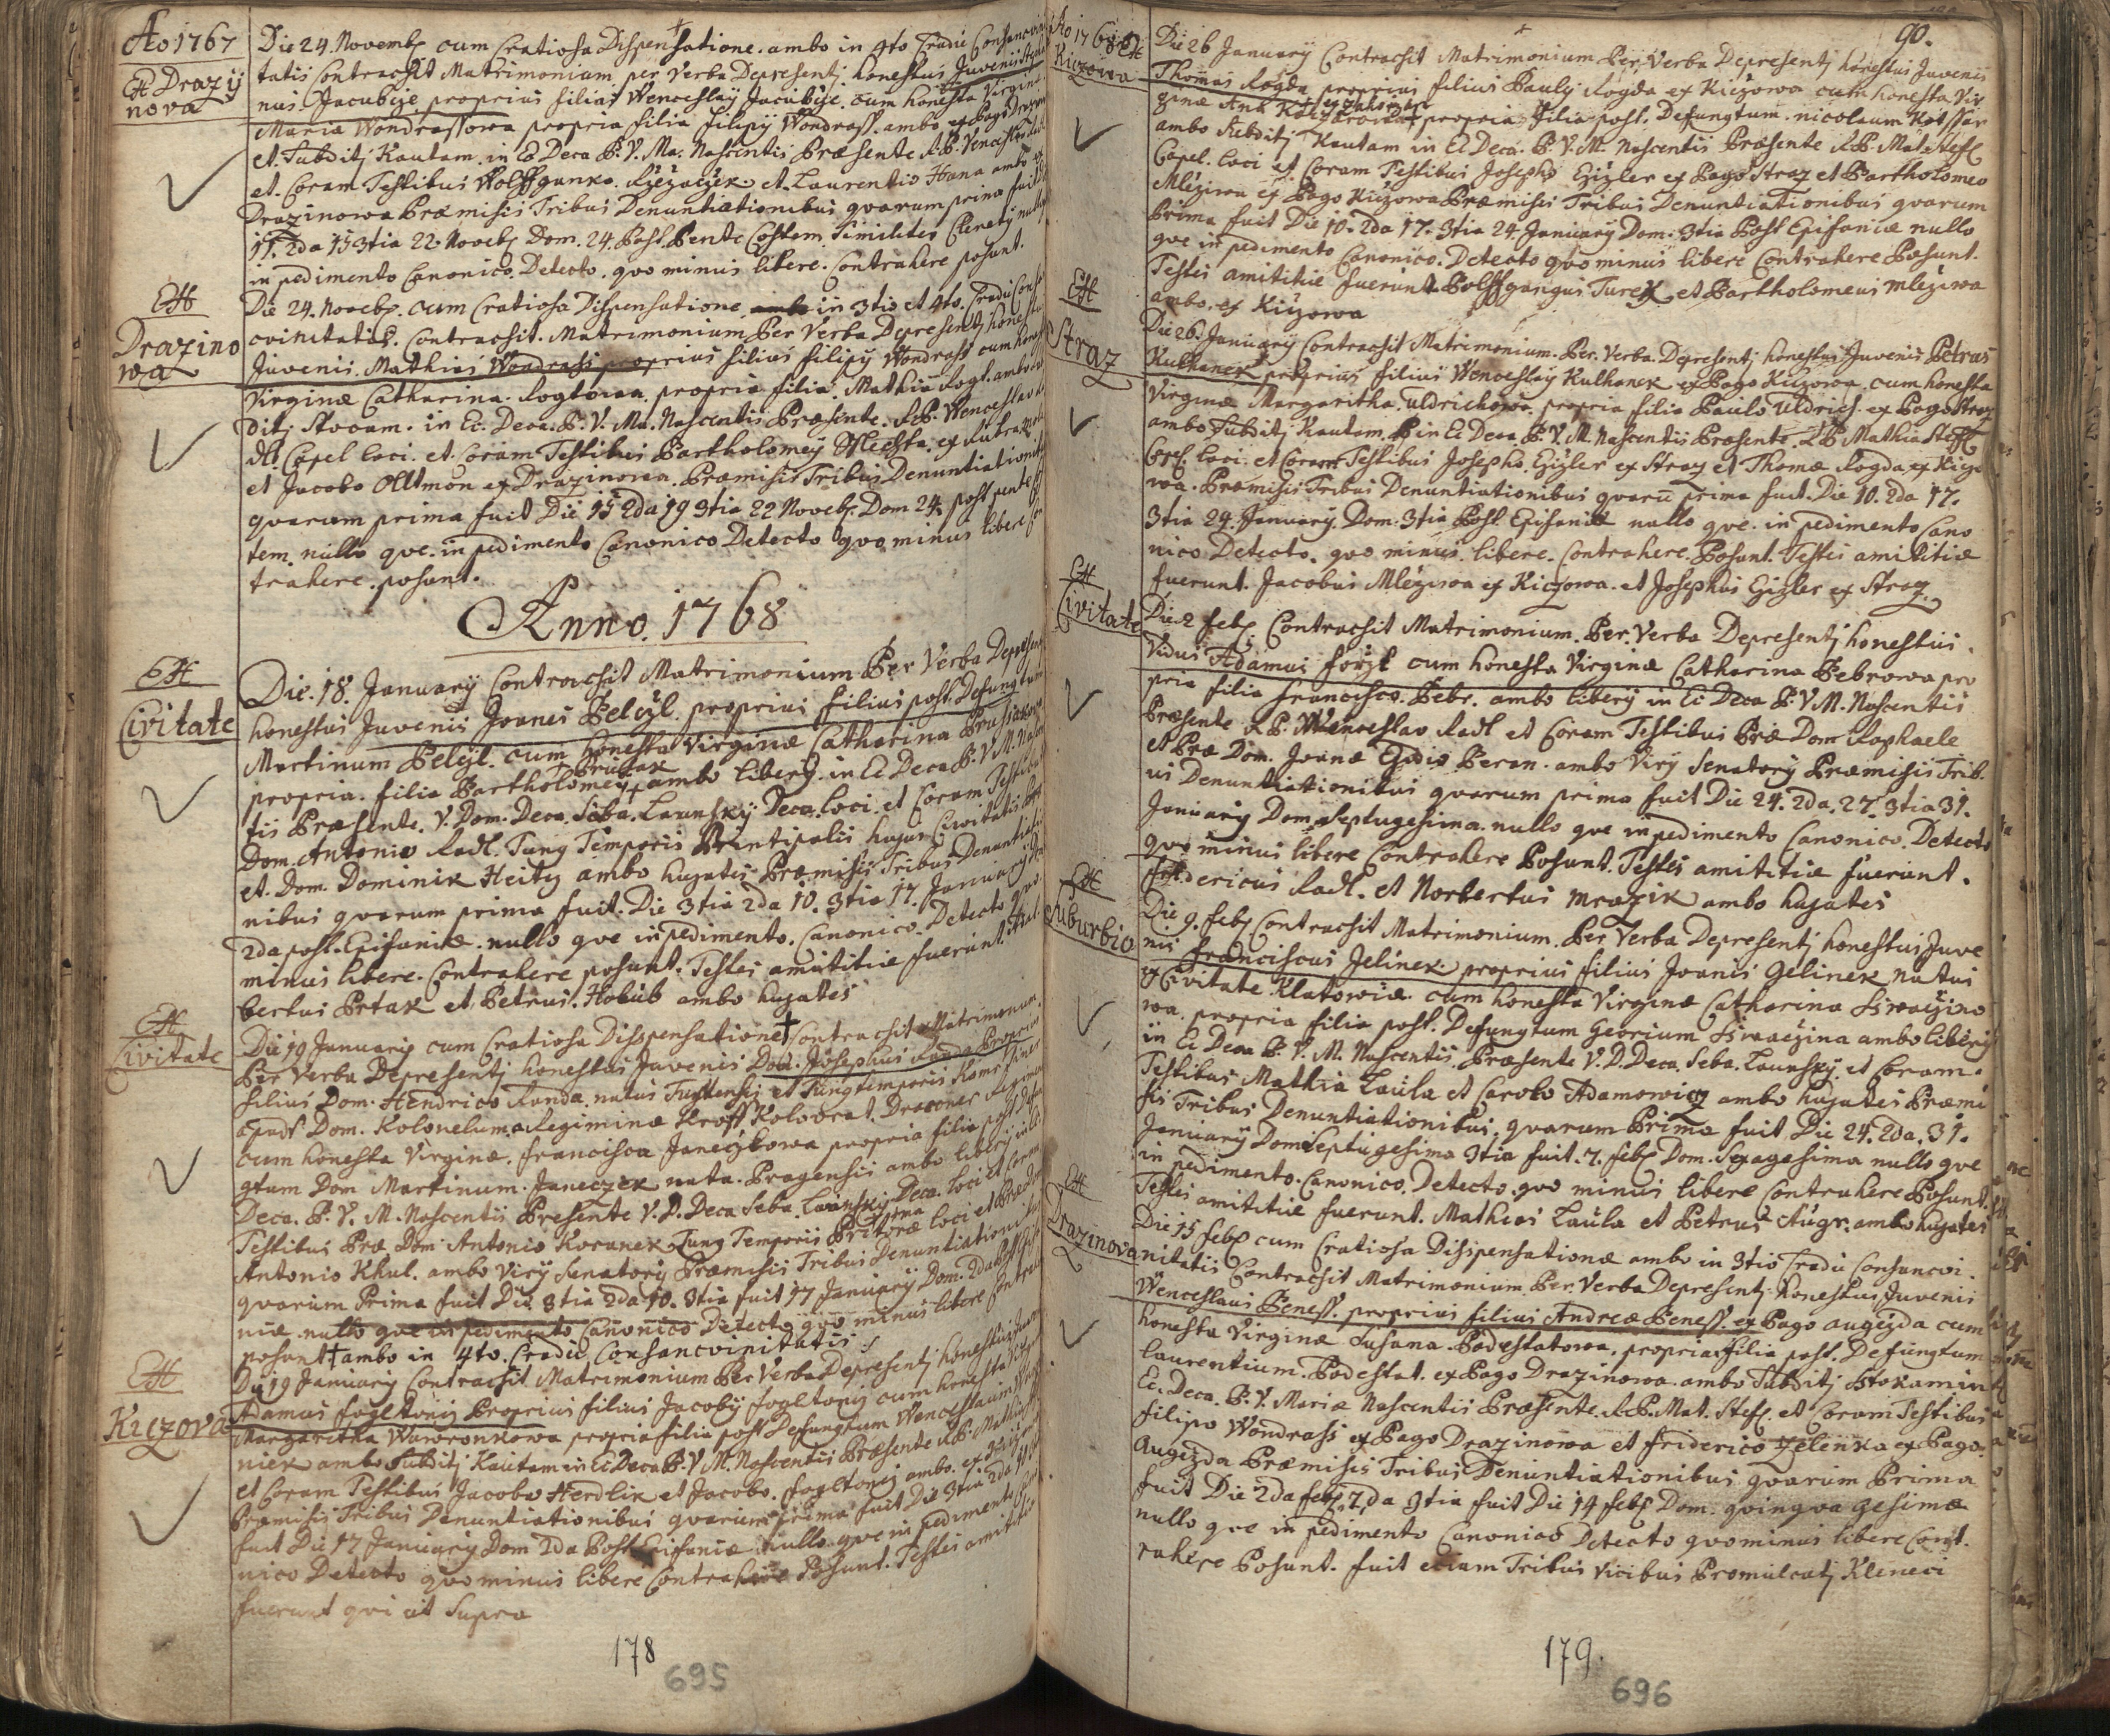 Ao 1767
Ex Drazy
nova
Die 24. Novemb. cum Cratiosa Dispensatione. ambo in 4to Gradu Consancvini
tatis Contracsit Matrimonium per Verba Depresentj honestus Juvenis
nus Jacubcje proprius filius Wenceslaÿ Jacubcje. cum honesta Virgin
Maria Wondrassowa propria filia Filipÿ Wondrass. ambo ex Pago
et. Subditj Kautam. in Ec Deca B. V. Ma. Nascentis Præsente R. P. Venceslao
et. Coram Testibus Wolffganko. et. Laurentio Hana ambo ex
Drazinowa Præmisis Tribus Denuntiationibus qvarum prima fuit
15. 3tia 22. Noveb. Dom. 24. Post. Pente Costem. Similiter Clenetj nullo
in pedimento Canonico. Detecto. qvo minus libere. Contrahere posunt.
Drazino
wa
Die 24. Noveb. cum Cratiosa Dispensatione in 3tio et 4to. Gradu Consan
cvinitatis. Contracsit. Matrimonium Per Verba Depresentj honestus
Juvenis. Mathias Wondrass proprius filius Filipÿ Wondrass cum honesta
Virginæ Catharina. Rogtowa. propria filia. Mathiæ Rogt. ambo
ditj Stocam. in Ec. Deca. B. V. Ma. Nascentis Præsente. R. P. Wenceslao
dl. Capel loci. et. Coram Testibus Bartholomeÿ ex
et Jacobo Alltmon ex Drazinowa. Præmisis Tribus Denuntiationibus
qvarum prima fuit Die 15 2da 19 3tia 22 Noveb. Dom 24. post pente Cos
tem. nullo qve. in pedimento Canonico Detecto qvo minus libere Con
trahere. posunt.
Anno. 1768
Civitate
Die. 18. Januarÿ Contracsit Matrimonium Per Verba Depresentj
honestus Juvenis Joanes Belcyl. proprius filius post. Defungtum
Martinum Belcyl. cum honesta Virginæ Catharina
propria. filia Bartholomeÿ Prussak ambo liberÿ. in Ec Deca B. V. M. Nascen
tis Præsente. V. Dom. Deca. Seba. Launskÿ Deca. loci. et Coram Testibus
Dom. Antonio Radl. Tung Temporis Printipalis hujus Civitatis
et. Dom. Dominik Heitz ambo hujates. Præmisis Tribus Denuntiatio
nibus qvarum prima fuit. Die 3tia 2da 10. 3tia 17. Januarÿ
2da post. Epifaniæ. nullo qve in pedimento. Canonico. Detecto qvo.
minus libere. Contrahere posunt. Testes amititiæ fuerunt.
bertus Brtak et. Petrus. Holub ambo hujates
Civitate
Die 19 Januarÿ cum Cratiosa Disspensatione † Contracsit Matrimonium
Per Verba Depresentj honestus Juvenis Dom. Josephus Randa Proprius
filius Dom. Hendrico Randa. natus et Tung temporis
apudt Dom. Kolonelum a Regiminæ Kroff Kolowrat. Dracones Regimen
cum honesta Virginæ. Francisca Janeczkowa propria filia post Defun
gtum Dom Martinum. Janeczek nata. Pragensis ambo liberÿ in Ec
Deca. B. V. M. Nascentis Presente V. D. Deca Seba. Launskÿ Deca. loci et Coram
Testibus Præ. Dom Antonio Koranek Tung Temporis Pritoræ loci et Præ Dom
Antonio Khul. ambo Virÿ Senatorÿ Præmisis Tribus Denuntiationibus
qvarum Prima fuit Die 3tia 2da 10. 3tia fuit 17 Januarÿ Dom. 2da Post Epifa
niæ. nullo qve in pedimento Canonico Detecto qvo minus libere Contrahe
posunt † ambo in 4to. Gradu Consancvinitatis
Kiczova
Die 19 Januarÿ Contracsit Matrimonium Per Verba Depresentj honestus Juvenis
Adamus Fogltonij Proprius filius Jacobÿ Fogltonij cum honesta Virginæ
Margaritha Wawronkowa propria filia post Defungtum Wenceslaum
niek ambo Subditj Kautam in Ec Deca B. V. M. Nascentis Præsente R. P. Mathia
et Coram Testibus Jacobo Herdlik et Jacobo. Fogltonij ambo. ex
Præmisis Tribus Denuntiationibus qvarum Prima fuit Die 3tia 2da
fuit Die 17 Januarÿ Dom 2da Post Epifaniæ nullo qve in pedimento Cano
nico Detecto qvo minus libere Contrahere Posunt. Testes amititiæ
fuerunt qvi ut Supra
178
695
Ao 1768
Kiczowa
90.
Die 26 Januarÿ Contracsit Matrimonium Per Verba Depresentj honestus Juvenis
Thomas Rogda proprius filius Paulÿ Rogda ex Kiczowa cum honesta Vir
ginæ Ana propria filia post. Defungtum. nicolaum
ambo Subditj Kautam in Ec Deca. B. V. M. Nascentis Præsente R. P. Mat. Steff
Capel. loci et Coram Testibus Josepho Gizler ex Pago Straz et Bartholomeo
Mleziwa ex Pago Kiczowa Præmisis Tribus Denuntiationibus qvarum
Prima fuit Die 10. 2da 17. 3tia 24 Januarÿ Dom. 3tia Post Epifaniæ nullo
qve in pedimento Canonico. Detecto qvo minus libere Contrahere Posunt.
Testes amititiæ fuerunt Wolffgangus Turek et Bartholomeus Mleziwa
ambo. ex Kiczowa
Straz
Die 26. Januarÿ Contracsit Matrimonium. Per. Verba. Depresentj honestus Juvenis Petrus
Kulhanek proprius filius Wenceslaÿ Kulhanek ex Pago Kiczowa cum honesta
Virginæ Margaritha. Uldrichowa. propria filia Paulo Uldrich. ex Pago Straz
ambo Subditj Kautam. in Ec Deca B. V. M. Nascentis Præsente. R P Mathia Steff
Cap. loci. et Coram Testibus Josepho. Gizler ex Straz et Thomæ Rogda ex Kiczo
wa. Præmisis Tribus Denuntiationibus qvarū prima fuit. Die 10. 2da 17.
3tia 24. Januarÿ. Dom. 3tia Post Epifaniæ nullo qve. in pedimento Cano
nico Detecto. qvo minus. libere. Contrahere. Posunt. Testes amititiæ
fuerunt. Jacobus Mleziwa ex Kiczowa. et Josephus Gizler ex Straz
Civitate
Die 2 Feb. Contracsit Matrimonium. Per. Verba Depresentj honestus.
Vidus Adamus Forst cum honesta Virginæ Catharina Bebrowa pro
pria filia Francisco. Bebr. ambo liberÿ in Ec Deca B. V. M. Nascentis
Præsente R P. Wenceslao Radl et Coram Testibus Præ Dom Raphaele
et Præ Dom. Joanæ Egidio Beran. ambo Virÿ Senatorÿ Præmisis Trib.
us Denuntiationibus qvarum prima fuit Die 24. 2da. 27. 3tia 31.
Januarÿ Dom. Septugesima. nullo qve in pedimento Canonico. Detecto
qvo minus libere Contrahere Posunt. Testes amititiæ fuerunt.
Fridericus Radl. et Norbertus Mrazik ambo hujates
Suburbio
Die 9. Feb. Contracsit Matrimonium. Per Verba Depresentj honestus Juve
nis Franciscus Jelinek. proprius filius Joanis Gelinek natus
ex Civitate Klatowiæ. cum honesta Virginæ Catharina Siwaczino
wa. propria filia post. Defungtum Georium Siwaczina ambo liberÿ
in Ec Deca B. V. M. Nascentis Præsente V. D. Deca, Seba. Launskÿ. et Coram.
Testibus Mathia Laula et Carolo Adamowicz ambo hujates Præmi
sis Tribus Denuntiationibus, qvarum Prima fuit Die 24. 2da. 31.
Januarÿ Dom Septugesima 3tia fuit. 7. Feb. Dom. Sexagesima nullo qve
in pedimento. Canonico. Detecto. qvo minus libere Contrahere Posunt.
Testes amititiæ fuerunt. Mathias Laula et Petrus Augr. ambo hujates
Drazinova
Die 15 Feb cum Cratiosa Disspensationæ ambo in 3tio Gradu Consancvi.
nitatis Contracsit Matrimonium Per Verba Depresentj honestus Juvenis
Wenceslaus Beness. proprius filius Andreæ Beness. ex Pago augezda cum
honesta Virginæ Susana. Podestatowa. propria filia post. Defungtum
Laurentium. Podestat. ex Pago Drazinowa. ambo Subditj Stokam in
Ec. Deca. B. V. Mariæ Nascentis Præsente R. P. Mat. Steff. et Coram Testibus
Filipo Wondrass ex Pago Drazinowa et Friderico Zelenka ex Pago
Augezda Præmisis Tribus Denuntiationibus qvarum Prima
fuit Die 2da Feb. 7. da 3tia fuit Die 14 Feb. Dom. qvingva gesima
nullo qve in pedimento Canonico Detecto qvominus libere Cont.
rahere Posunt. fuit eciam Tribus Vicibus Promulcatj Kleneci
179.
696